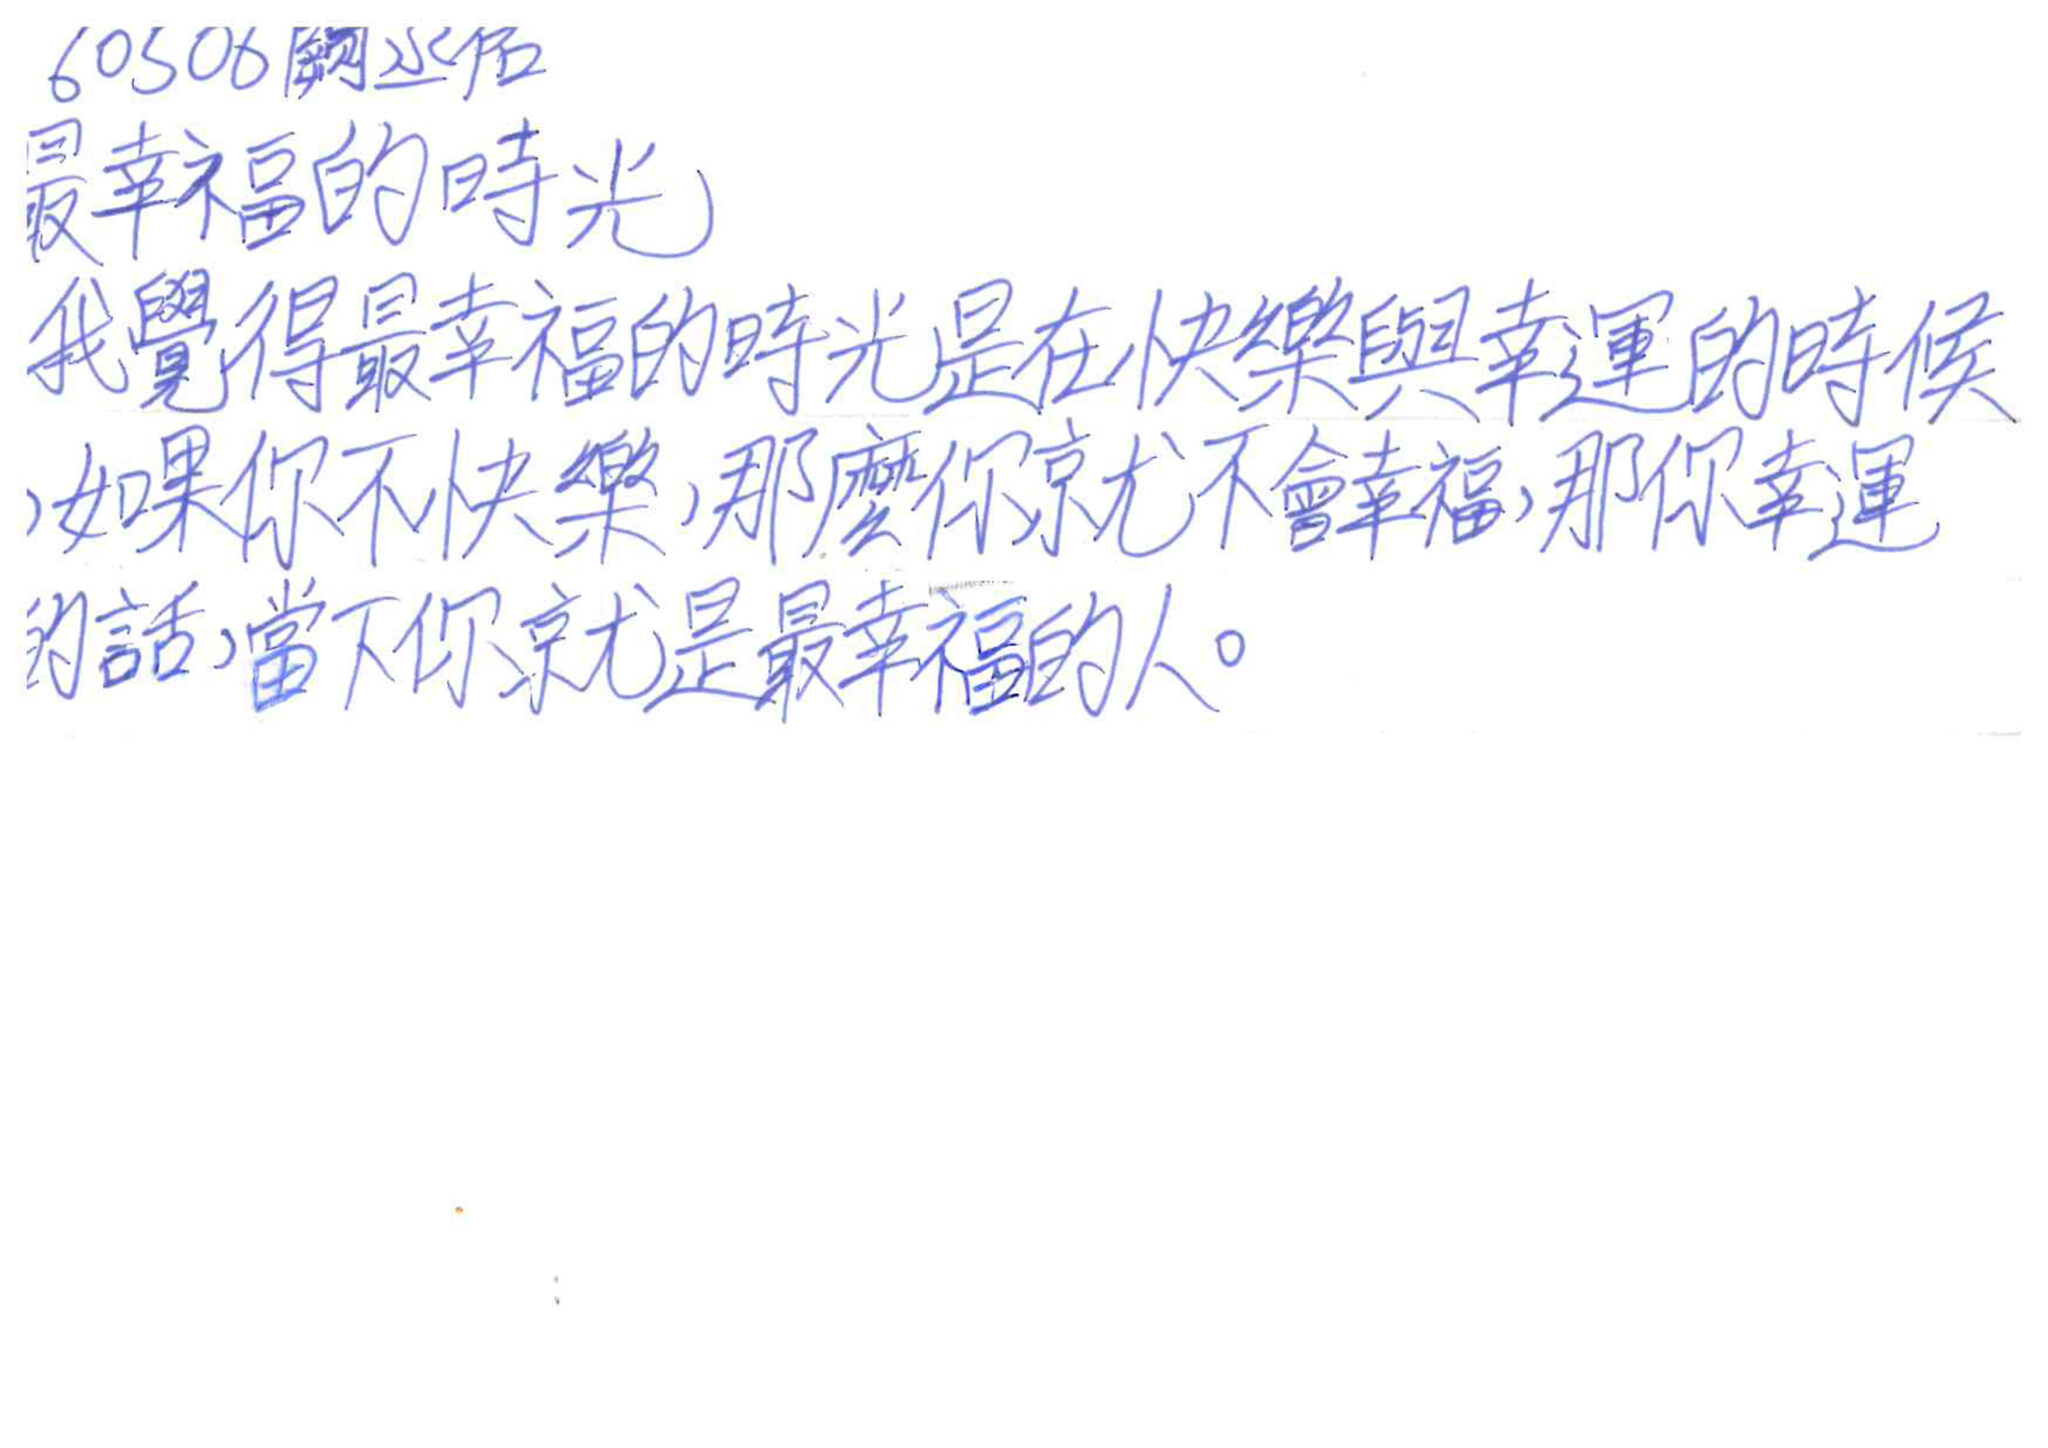 60506闕丞佑
最幸福的時光
我覺得最幸福的時光是在快樂與幸運的時候
，如果你不快樂，那麼你就不會幸福，那你幸運
的話，當下你就是最幸福的人。